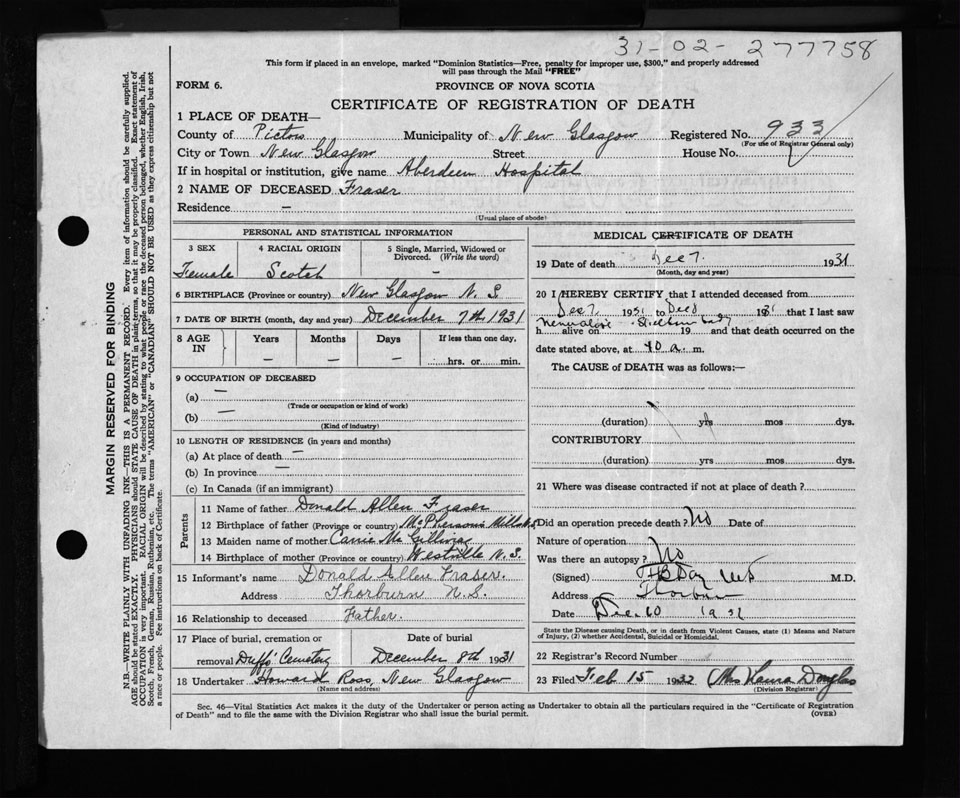 31-02-277758
This form if placed in an envelope, marked "Dominion Statistics—Free, penalty for improper use, $300," and properly addressed
will pass through the Mail "FREE"
FORM 6.
PROVINCE OF NOVA SCOTIA
CERTIFICATE OF REGISTRATION OF DEATH
1 PLACE OF DEATH—
County of Pictou Municipality of New Glasgow Registered No. 933
(For use of Registrar General only)
City or Town New Glasgow Street House No.
If in hospital or institution, give name Aberdeen Hospital
2 NAME OF DECEASED Fraser
Residence —
(Usual place of abode)
PERSONAL AND STATISTICAL INFORMATION
3 SEX 4 RACIAL ORIGIN 5 Single, Married, Widowed or
Divorced. (Write the word)
Female Scotch —
6 BIRTHPLACE (Province or country) New Glasgow N. S.
7 DATE OF BIRTH (month, day and year) December 7th 1931
8 AGE IN Years Months Days If less than one day,
— — — hrs. or min.
9 OCCUPATION OF DECEASED
(a) —
(Trade or occupation or kind of work)
(b) —
(Kind of industry)
10 LENGTH OF RESIDENCE (in years and months)
(a) At place of death —
(b) In province —
(c) In Canada (if an immigrant)
Parents
11 Name of father Donald Allen Fraser
12 Birthplace of father (Province or country) McPhersons Mills N.S.
13 Maiden name of mother Carrie McGillivray
14 Birthplace of mother (Province or country) Westville N. S.
15 Informant's name Donald Allen Fraser.
Address Thorburn N.S.
16 Relationship to deceased Father.
17 Place of burial, cremation or Date of burial
removal Duffs' Cemetery December 8th 1931
18 Undertaker Howard Ross, New Glasgow
(Name and address)
MEDICAL CERTIFICATE OF DEATH
19 Date of death Dec 7. 1931
(Month, day and year)
20 I HEREBY CERTIFY that I attended deceased from
Dec 7 1931 to Dec 8 that I last saw
h alive on 19 and that death occurred on the
date stated above, at 10 a. m.
The CAUSE of DEATH was as follows:—
(duration) yrs mos dys.
CONTRIBUTORY
(duration) yrs mos dys.
21 Where was disease contracted if not at place of death?
Did an operation precede death? No Date of
Nature of operation
Was there an autopsy? No
(Signed) M.D.
Address Thorburn
Date Dec. 10 1931
State the Disease causing Death, or in death from Violent Causes, state (1) Means and Nature
of Injury, (2) whether Accidental, Suicidal or Homicidal.
22 Registrar's Record Number
23 Filed Feb 15 1932 (Mrs) Laura Douglas
(Division Registrar)
Sec. 46—Vital Statistics Act makes it the duty of the Undertaker or person acting as Undertaker to obtain all the particulars required in the "Certificate of Registration
of Death" and to file the same with the Division Registrar who shall issue the burial permit.
(OVER)
MARGIN RESERVED FOR BINDING
N.B.—WRITE PLAINLY WITH UNFADING INK—THIS IS A PERMANENT RECORD. Every item of information should be carefully supplied.
AGE should be stated EXACTLY. PHYSICIANS should STATE CAUSE OF DEATH in plain terms, so that it may be properly classified. Exact statement of
OCCUPATION is very important. RACIAL ORIGIN will be described by stating to what people or race the deceased person belonged, whether English, Irish,
Scotch, French, German, Russian, Ruthenian, etc. The terms "AMERICAN" or "CANADIAN" SHOULD NOT BE USED as they express citizenship but not
a race or people. See instructions on back of Certificate.